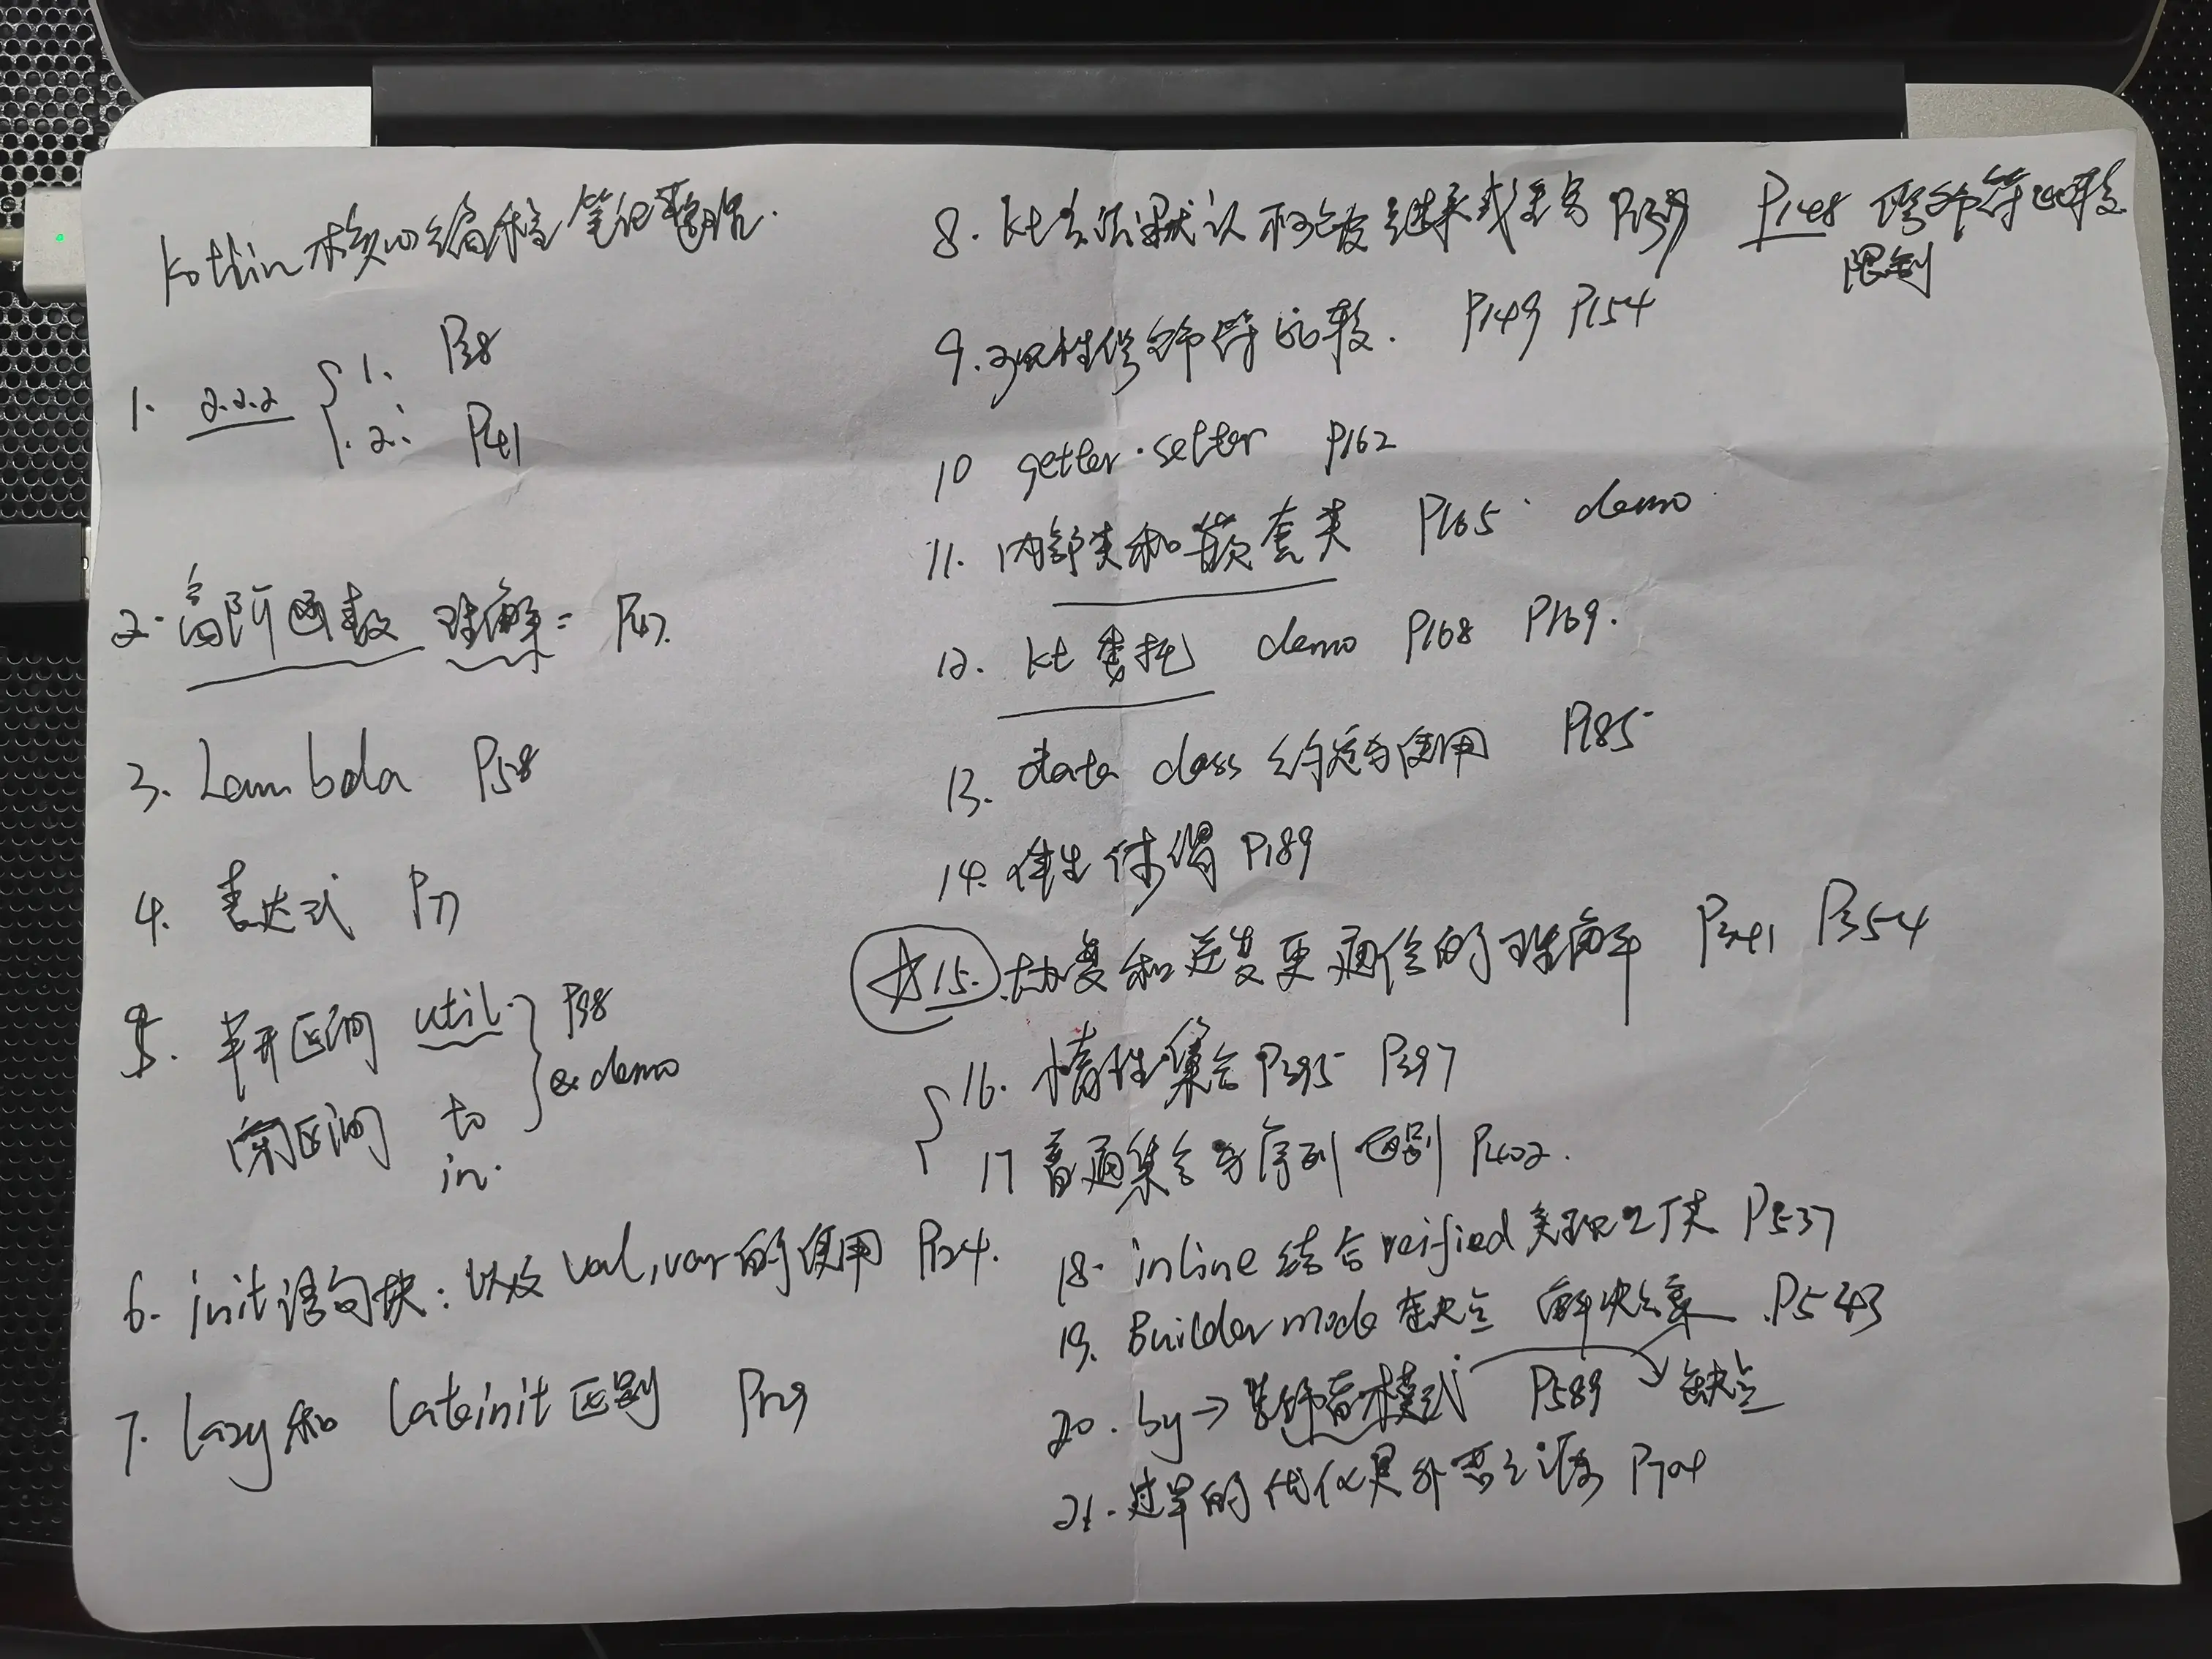 Kotlin核心编程笔记整理.
1. 2.2.2 { 1. P38
2. P41
2. 高阶函数 理解: P47.
3. Lambda P58
4. 表达式 P77
5. 半开区间 util. } P98
& demo
闭区间 to
in.
6. init语句块: 以及 val, var的使用 P124.
7. lazy和 lateinit 区别 P129
8. kt 方法默认不能被继承或重写 P139 P148 修饰符比较
限制
9. 可见性修饰符比较. P149 P154
10 getter.setter P162
11. 内部类和嵌套类 P165. demo
12. kt 委托 demo P168 P169.
13. data class 约定与使用 P185
14. 伴生 P189
☆15. 协变和逆变更通俗的理解 P341 P354
16. 惰性集合 P395 P397
17 普通集合与序列区别 P402.
18. inline 结合 reified 实现工厂类 P537
19. Builder mode 缺点 解决方案 P543
20. by→装饰者模式 P589 缺点
21. 过早的优化是万恶之源 P704